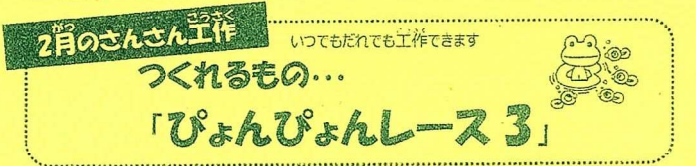 がつ こうさく
2月のさんさん工作
いつでもだれでも工作できます
つくれるもの…
「ぴょんぴょんレース3」